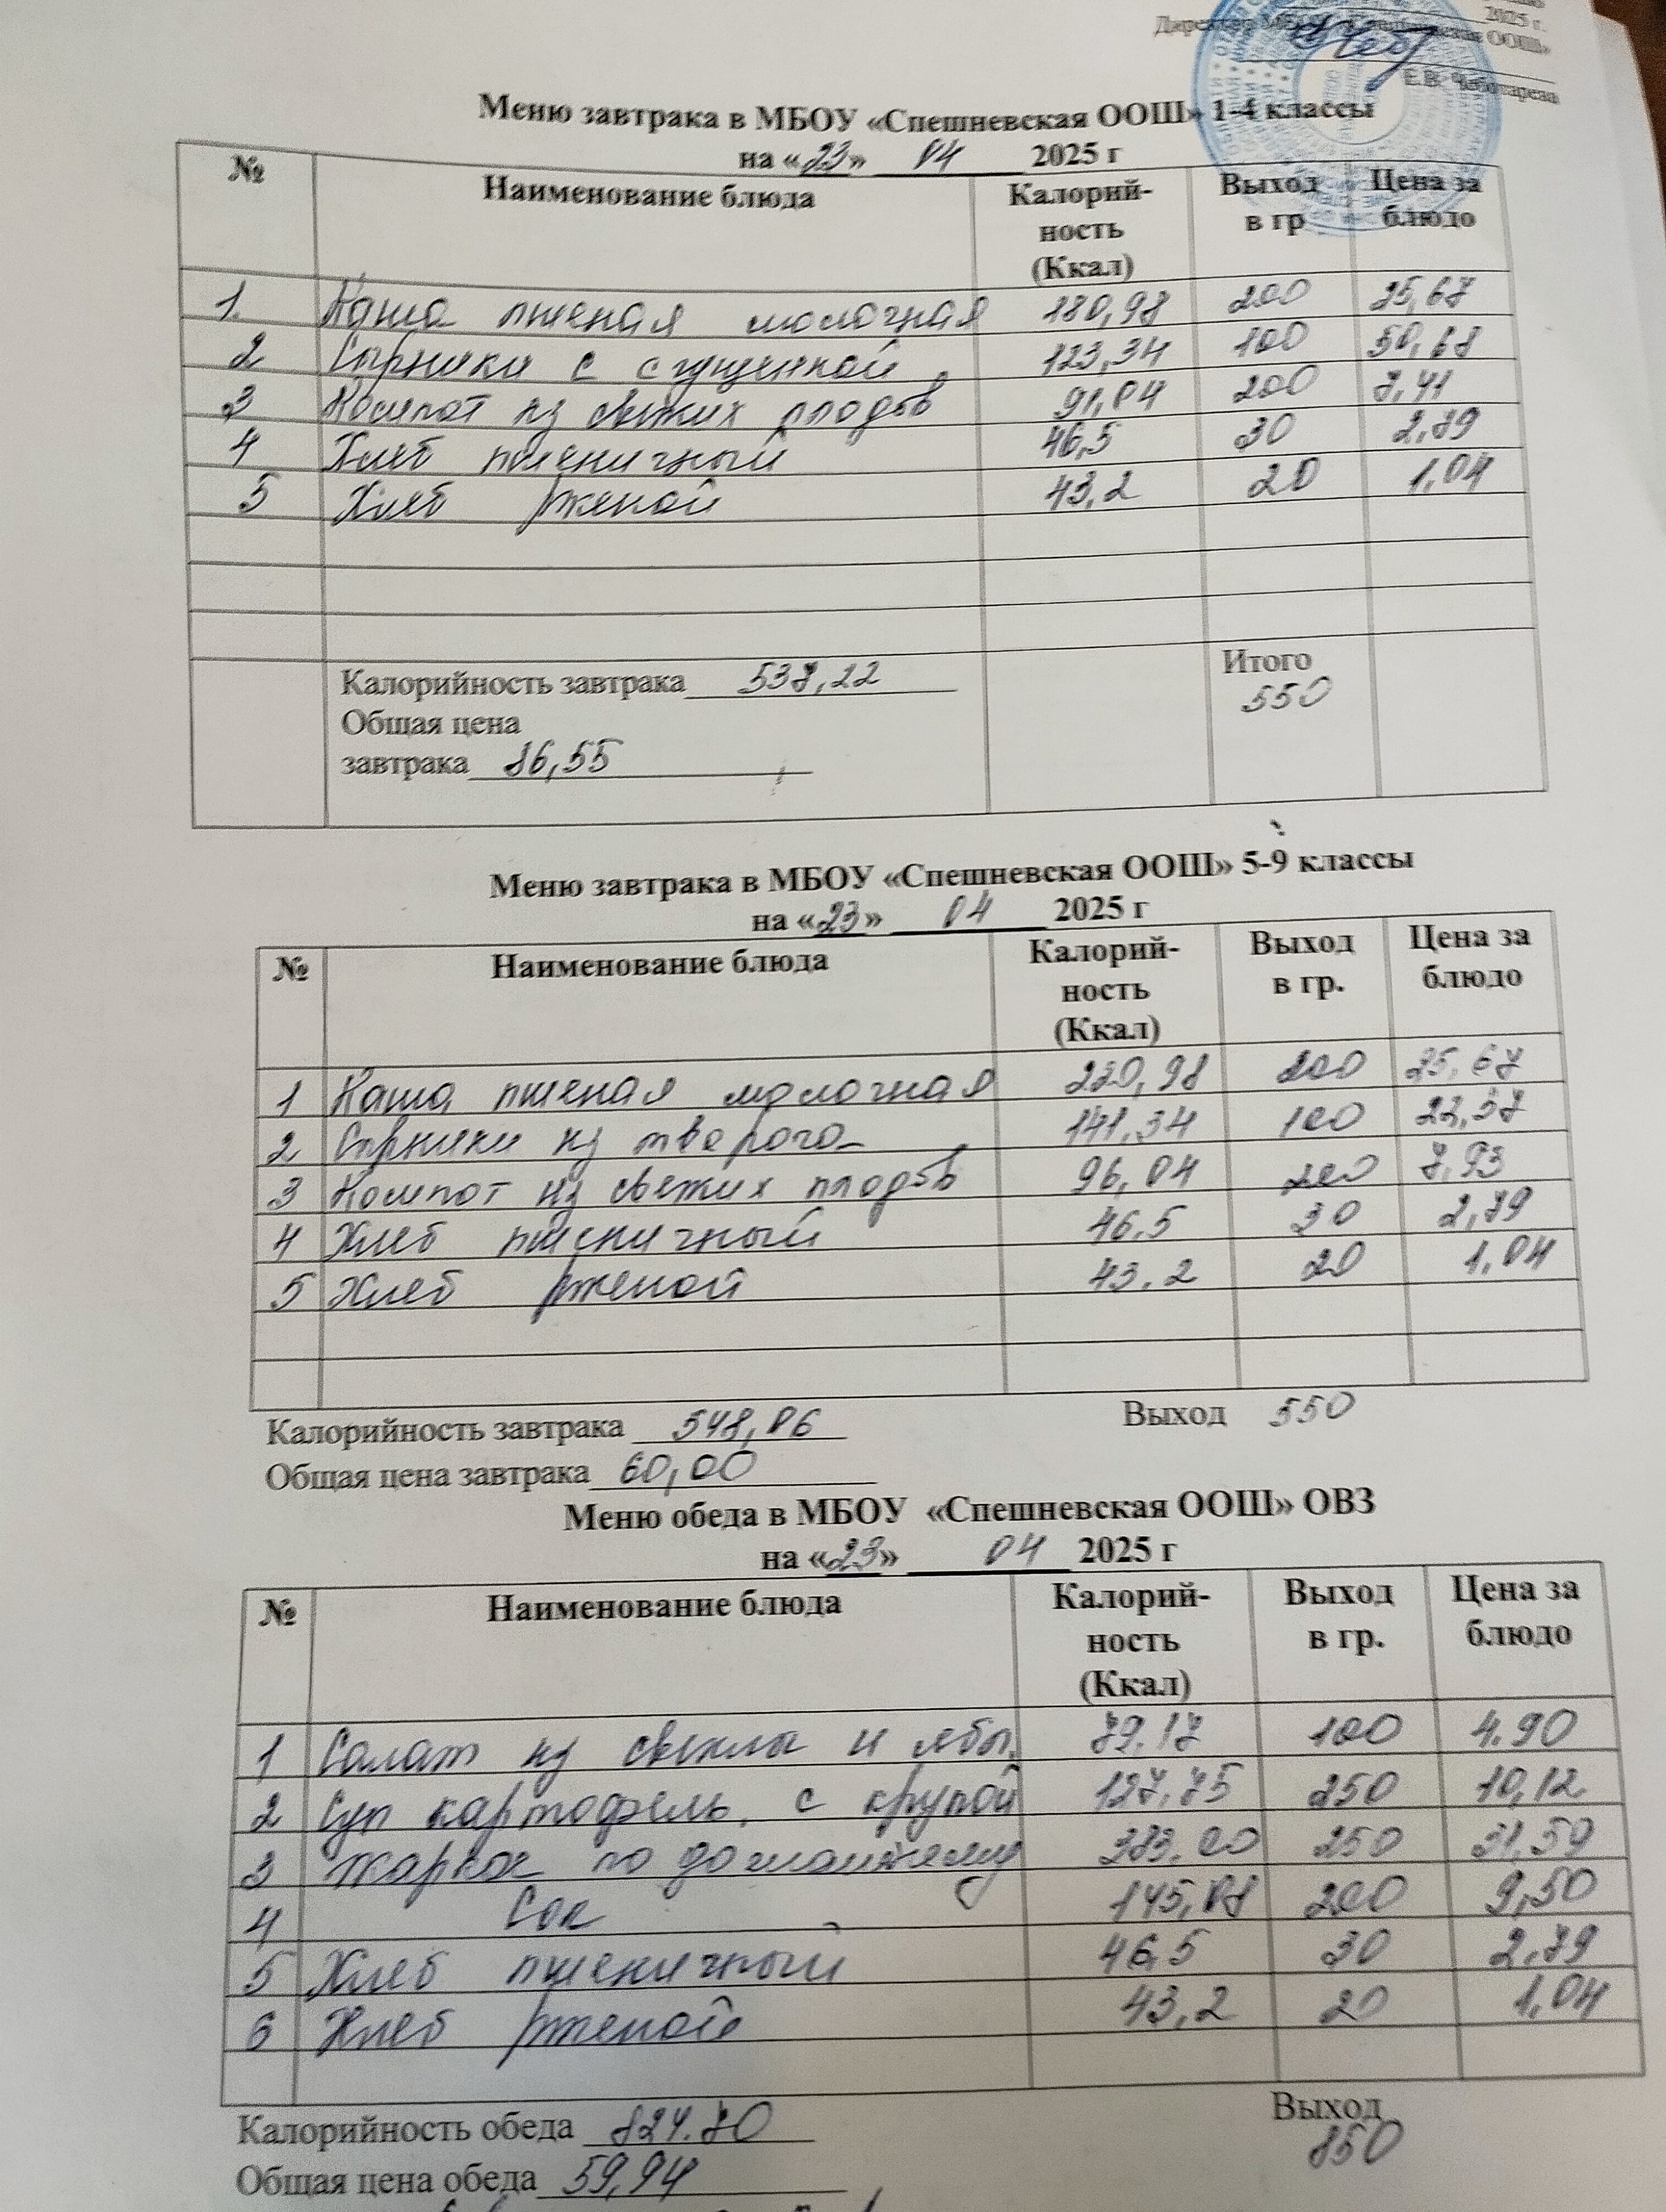 2025 г.
Директор МБОУ ООШ»
Е.В. Чеботарева
Меню завтрака в МБОУ «Спешневская ООШ» 1-4 классы
на «23» 04 2025 г
№ Наименование блюда Калорий-ность (Ккал) Выход в гр Цена за блюдо
1. Каша пшеная молочная 180,98 200 25,67
2 Сырники с сгущенкой 123,34 100 50,68
3 Компот из свежих плодов 91,04 200 7,41
4 Хлеб пшеничный 46,5 30 2,79
5 Хлеб ржаной 43,2 20 1,04
Калорийность завтрака 538,22 Итого
Общая цена 550
завтрака 86,55
Меню завтрака в МБОУ «Спешневская ООШ» 5-9 классы
на «23» 04 2025 г
№ Наименование блюда Калорий-ность (Ккал) Выход в гр. Цена за блюдо
1 Каша пшеная молочная 220,98 200 25,67
2 Сырники из творога 141,34 100 22,57
3 Компот из свежих плодов 96,04 200 7,93
4 Хлеб пшеничный 46.5 30 2,79
5 Хлеб ржаной 43.2 20 1,04
Калорийность завтрака 548,06 Выход 550
Общая цена завтрака 60,00
Меню обеда в МБОУ «Спешневская ООШ» ОВЗ
на «23» 04 2025 г
№ Наименование блюда Калорий-ность (Ккал) Выход в гр. Цена за блюдо
1 Салат из свеклы и ябл. 79.17 100 4.90
2 Суп картофель. с крупой 127,75 250 10,12
3 Жаркое по домашнему 383.00 250 31,59
4 Сок 145,08 200 9,50
5 Хлеб пшеничный 46,5 30 2,79
6 Хлеб ржаной 43,2 20 1,04
Калорийность обеда 824.70 Выход
Общая цена обеда 59,94 850